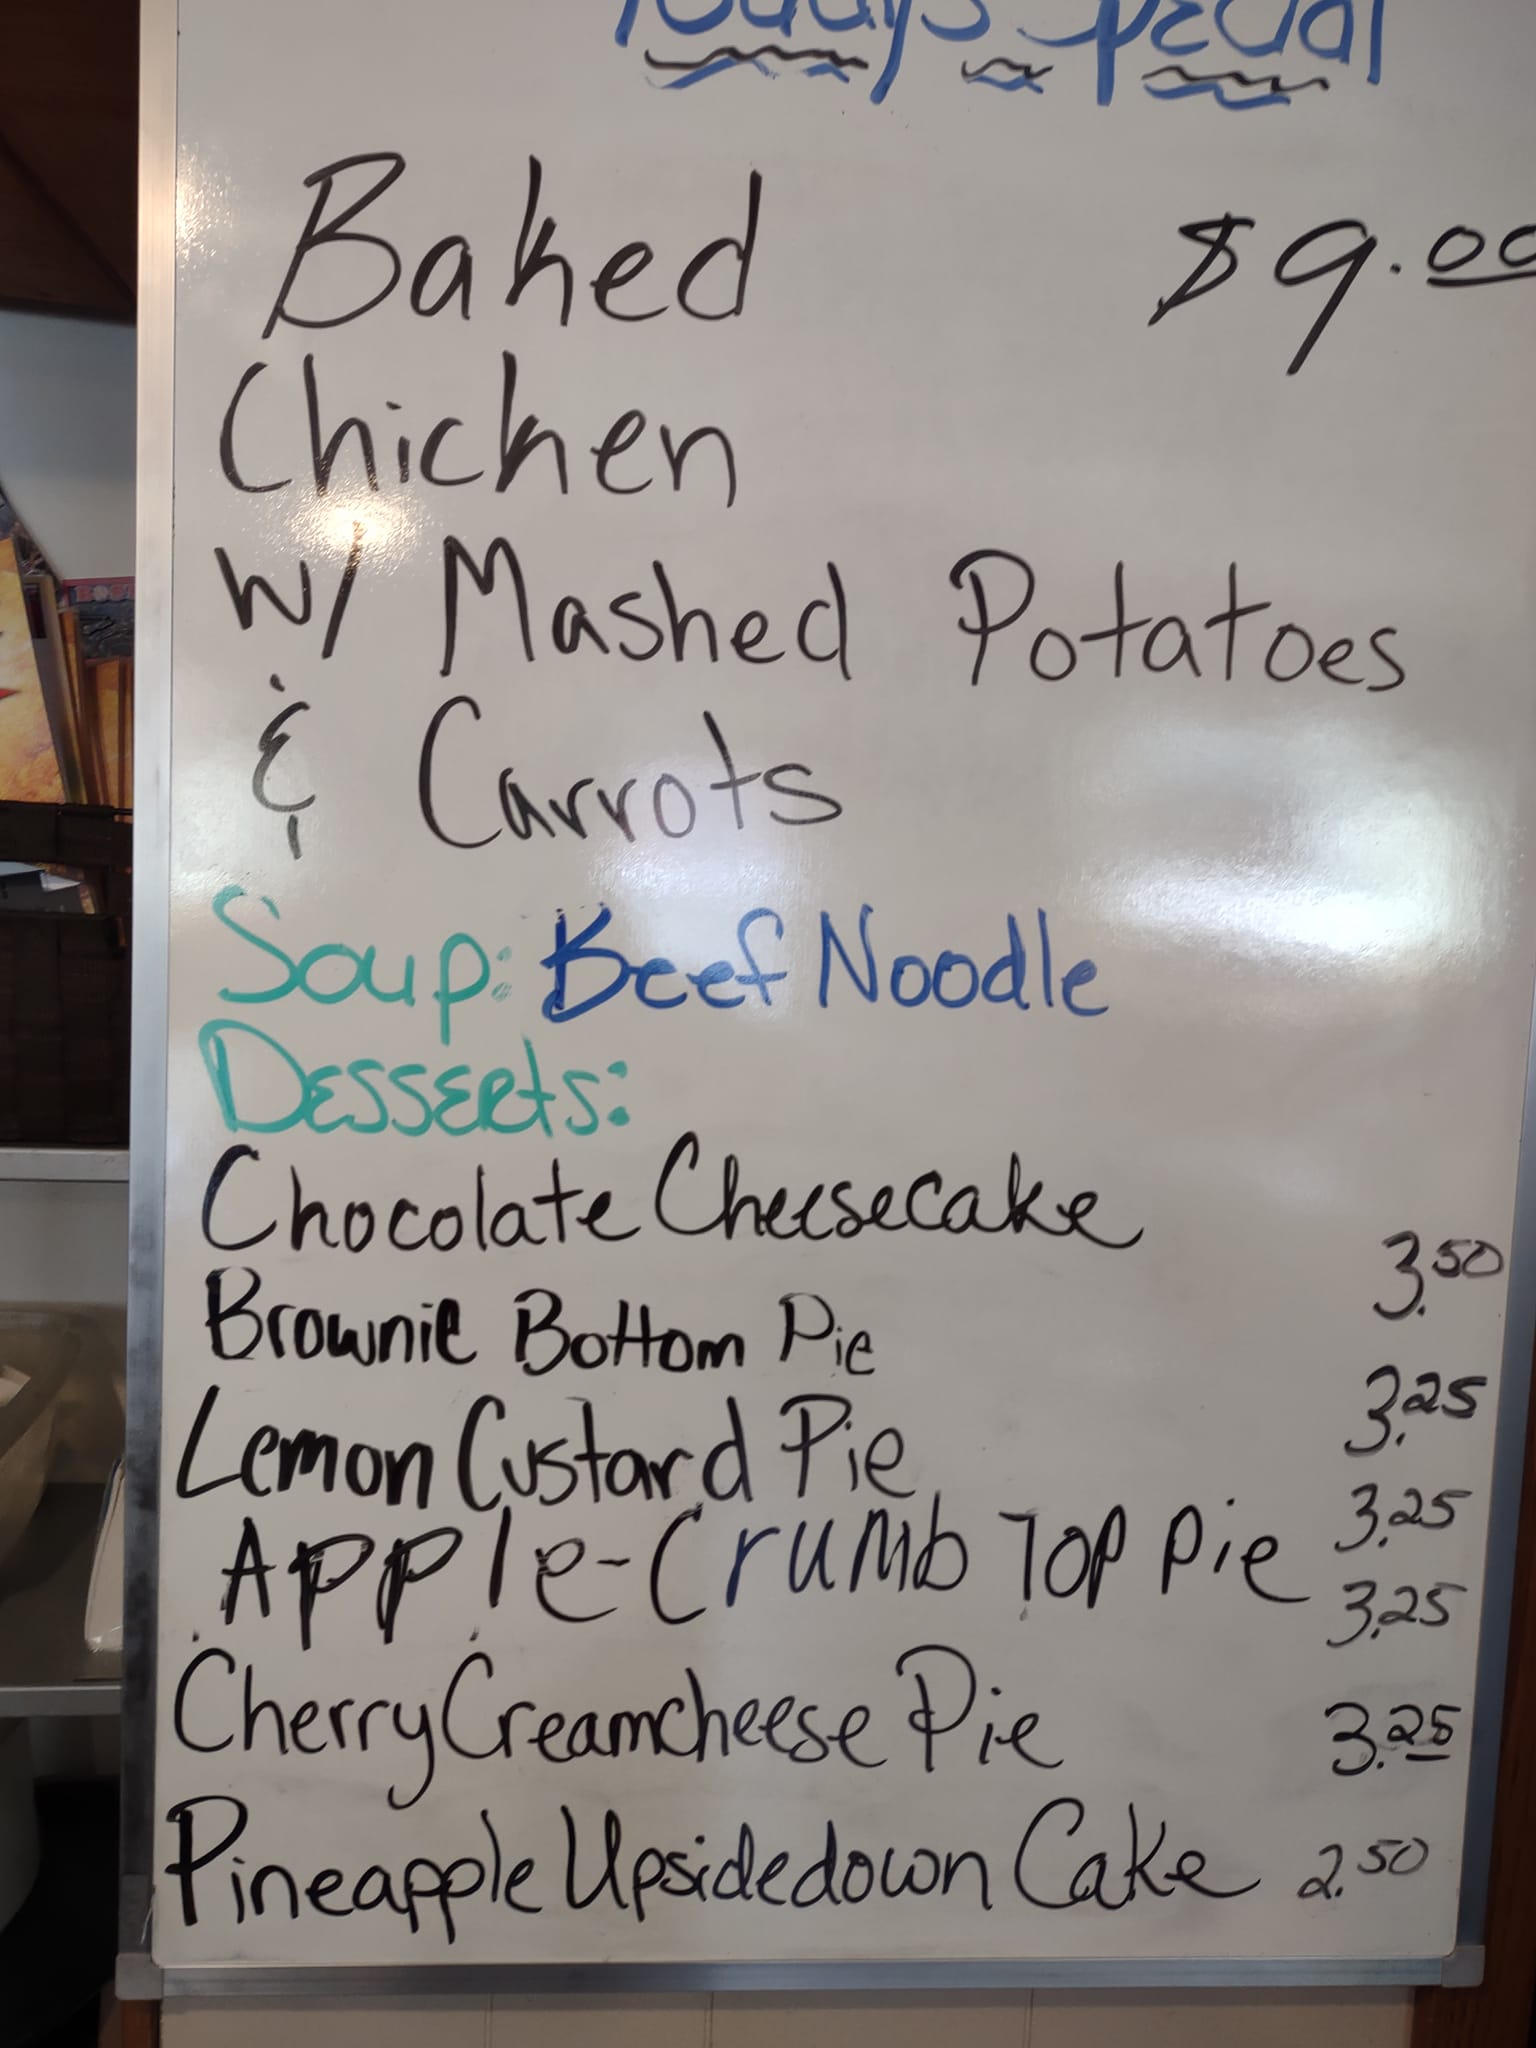 Todays Special
Baked $9.00
Chicken
w/ Mashed Potatoes
& Carrots
Soup: Beef Noodle
Desserts:
Chocolate Cheesecake 3.50
Brownie Bottom Pie 3.25
Lemon Custard Pie 3.25
Apple-Crumb Top Pie 3.25
Cherry Creamcheese Pie 3.25
Pineapple Upsidedown Cake 2.50